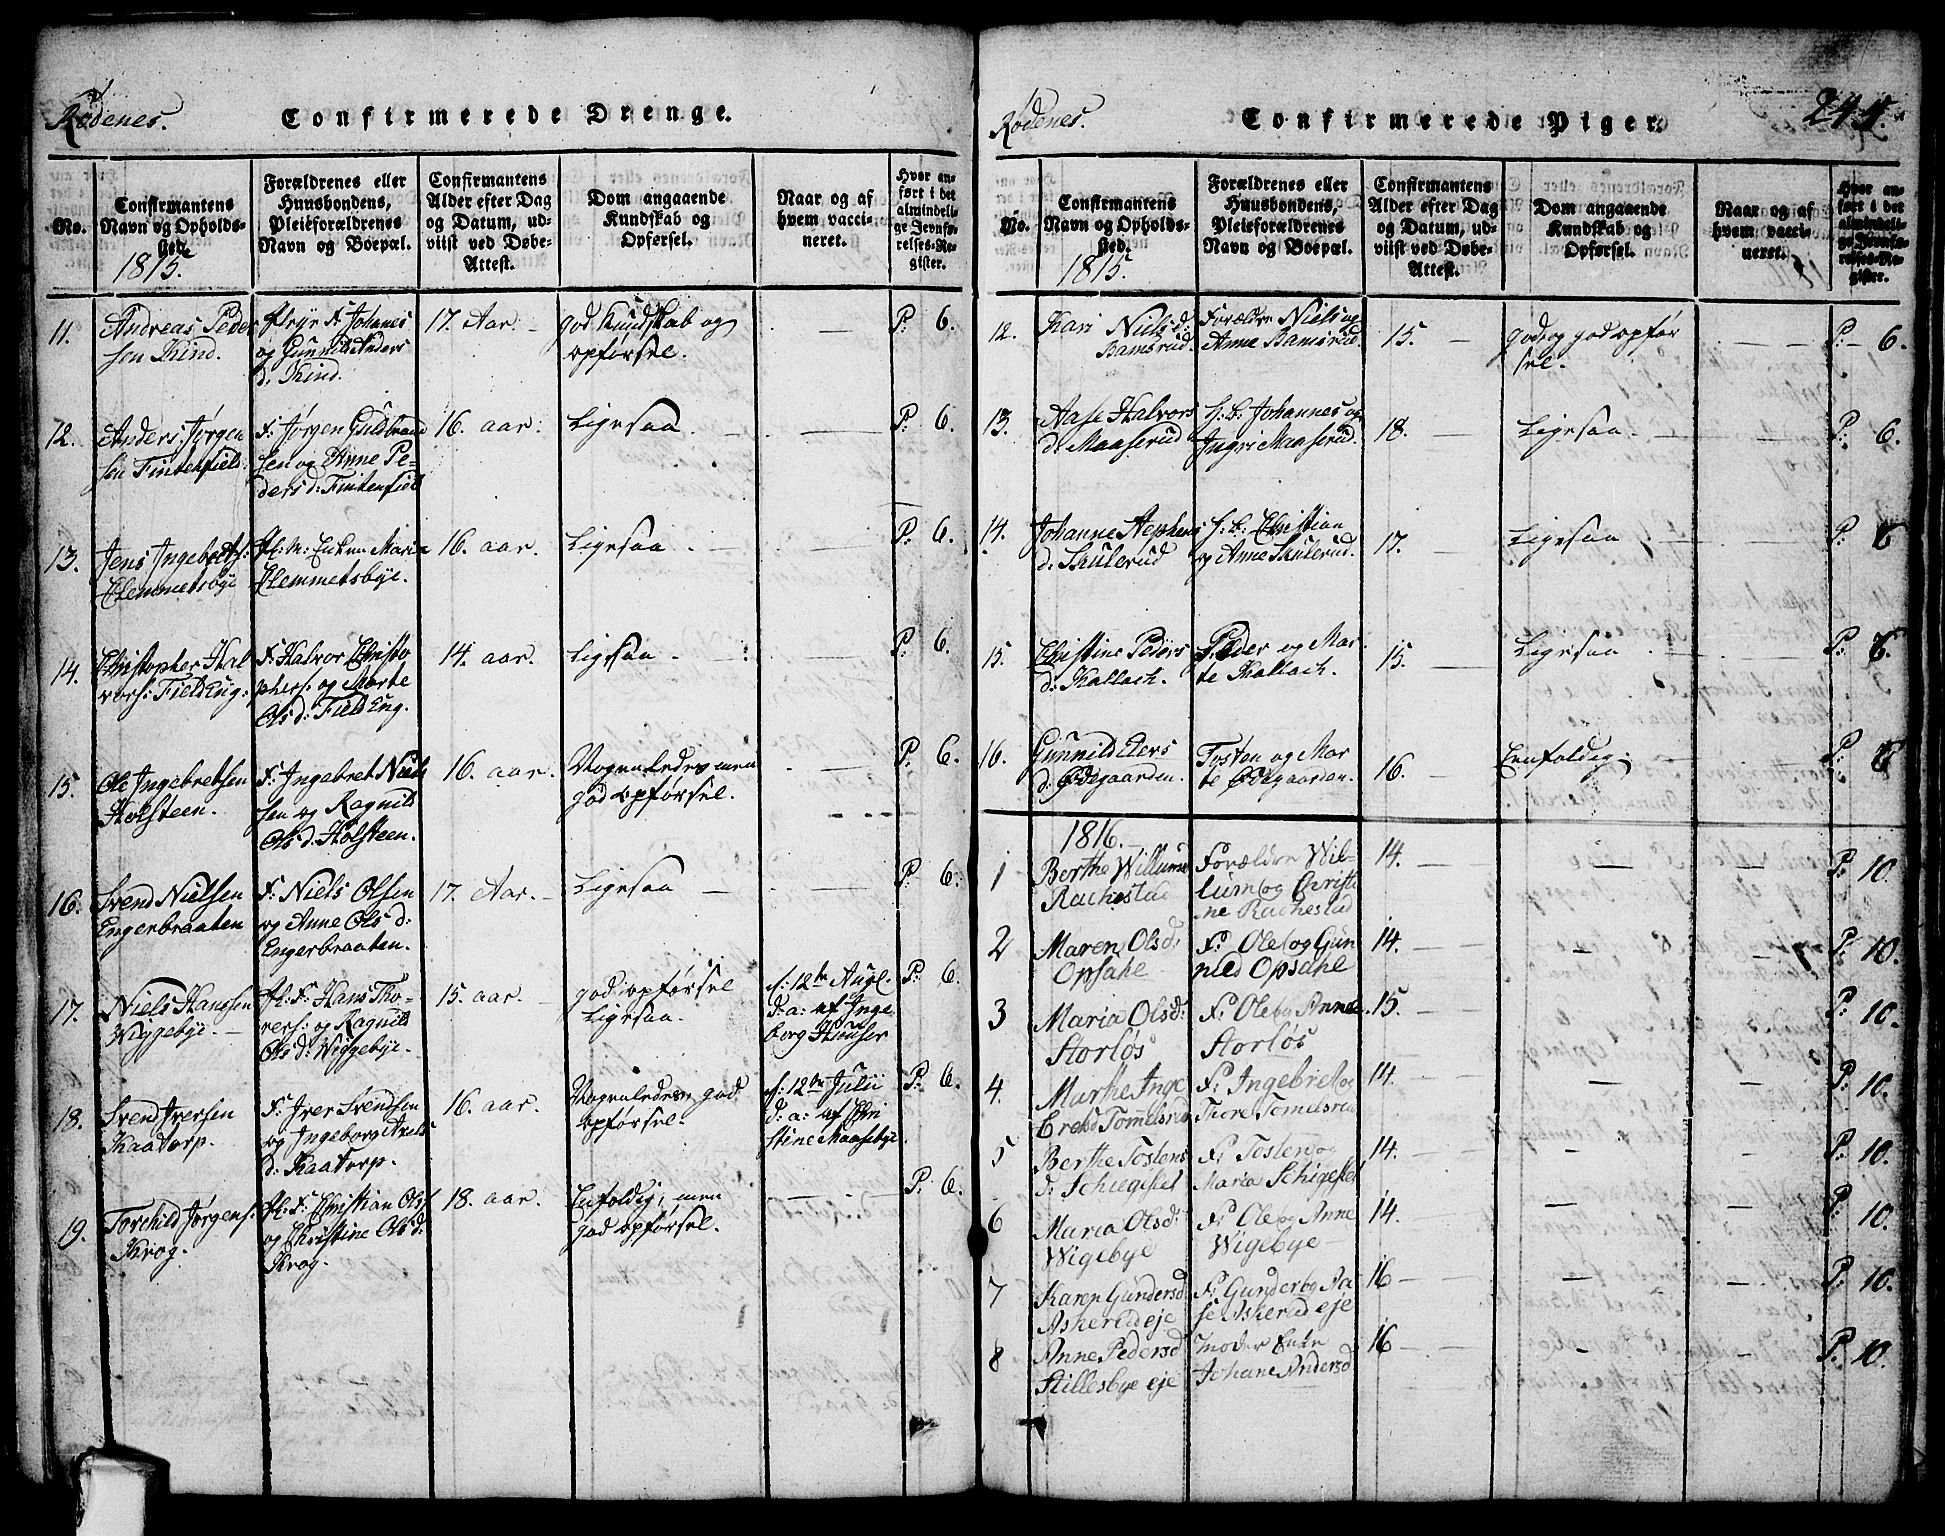 Rødenes.
Confirmerede Drenge.
No.
Confirmantens
Navn og Opholds-
sted.
1815.
Forældrenes eller
Huusbondens,
Pleieforældrenes
Navn og Boepæl.
Confirmantens
Alder efter Dag
og Datum, ud-
viist ved Døbe-
Attest.
Dom angaaende
Kundskab og
Opførsel.
Naar og af
hvem vacci-
neret.
Hvor an-
ført i det
almindeli-
ge Jevnfø-
relses-Re-
gister.
11.
Andreas Peder
sen Kind.
Johanes
og Gunnild Anders
d: Kind.
17. Aar.
god Kundskab og
opførsel.
P: 6.
12.
Anders Jørgen
sen Fintenfield:
F: Jørgen Guldbrand
sen og Anne Pe-
dersd: Fintenfield
16. aar.
Ligesaa.
P: 6.
13.
Jens Ingebretss:
Clemmetsbye
Enken Maria
Clemmetsbye.
16. aar.
Ligesaa
P: 6.
14.
Christopher Hal
vors: FieldEng:
F: Halvor Christo
phers: og Marte
Olsd: FieldEng.
14. aar.
Ligesaa
P: 6.
15.
Ole Ingebretsen
Holsteen.
F: Ingebret Niels
sen og Ragnild
Olsd: Holsteen.
16. aar.
Maadelig men
god opførsel.
P: 6.
16.
Svend Nielsen
Engerbraaten
F: Niels Olsen
og Anne Olsd:
Engerbraaten.
17. Aar.
Ligesaa
P: 6.
17.
Niels Hanssen
Wiggebye.
Pl: F: Hans Tho-
rers: og Ragnild
Olsd: Wiggebye.
15. aar.
god opførsel
Ligesaa.
d: 12te Aug.
d: a: af Inge
borg Huuser
P: 6.
18.
Svend Iversen
Kaatorp.
F: Iver Svendsen
og Ingeborg Axels
d: Kaatorp.
16. aar.
god
opførsel.
d: 12te Julii
d: a: af Chri
stine Maasebye
P: 6.
19.
Torchild Jørgens:
Krog.
Pl: F: Christian Ols:
og Christine Olsd:
Krog.
18. aar.
Enfoldig, men
god opførsel.
P: 6.
Rødenes.
Confirmerede Piger.
244.
No.
Confirmantens
Navn og Opholds-
sted.
1815.
Forældrenes eller
Huusbondens,
Pleieforældrenes
Navn og Boepæl.
Confirmantens
Alder efter Dag
og Datum, ud-
viist ved Døbe-
Attest.
Dom angaaende
Kundskab og
Opførsel.
Naar og af
hvem vacci-
neret.
Hvor an-
ført i det
almindeli-
ge Jevnfø-
relses-Re-
gister.
12.
Kari Nielsd:
Bamsrud.
Forældre Niels og
Anne Bamsrud.
15.
god og god opfør
sel.
P: 6.
13.
Aase Halvors
d: Maaserud
H: b: Johannes og
Ingri Maaserud.
18.
Ligesaa.
P: 6.
14.
Johanne Stephens
d: Skulerud
H: b: Christian
og Anne Skulerud.
17.
Ligesaa
P: 6
15.
Christine Peders
d: Kallach.
Peder og Mar
te Kallach.
15.
Ligesaa
P: 6.
16.
Gunnild Ters
d: Ødegaarden.
Tosten og Mar
te Ødegaarden.
16.
Eenfoldig.
P: 6
1816.
1
Berthe Willums
Rachestad
Forældre Wil-
lum og Christi
ne Rachestad
14.
P: 10.
2
Maren Olsd:
Opsahl
F: Ole og Gun
nild Opsahl
14.
P: 10.
3
Maria Olsd:
Storløs
F: Ole og Anne
Storløs
15.
P: 10.
4.
Marthe Inge
bretsd Tomelsrud
F: Ingebret og
Thore Tomelsrud
14.
P: 10.
5
Berthe Tostens
d: Schiegstel
F: Tosten og
Maria Schigestel
14.
P: 10.
6
Maria Olsd:
Wigebye
F: Ole og Anne
Wigebye
14.
P: 10.
7
Karen Gundersd
Askerud eje
F: Gunder og Aa
se Askerud eje
16
P: 10.
8
Anne Pedersd
Stillesbye eje
Moder Enke
Johane Andersd
16
P: 10.